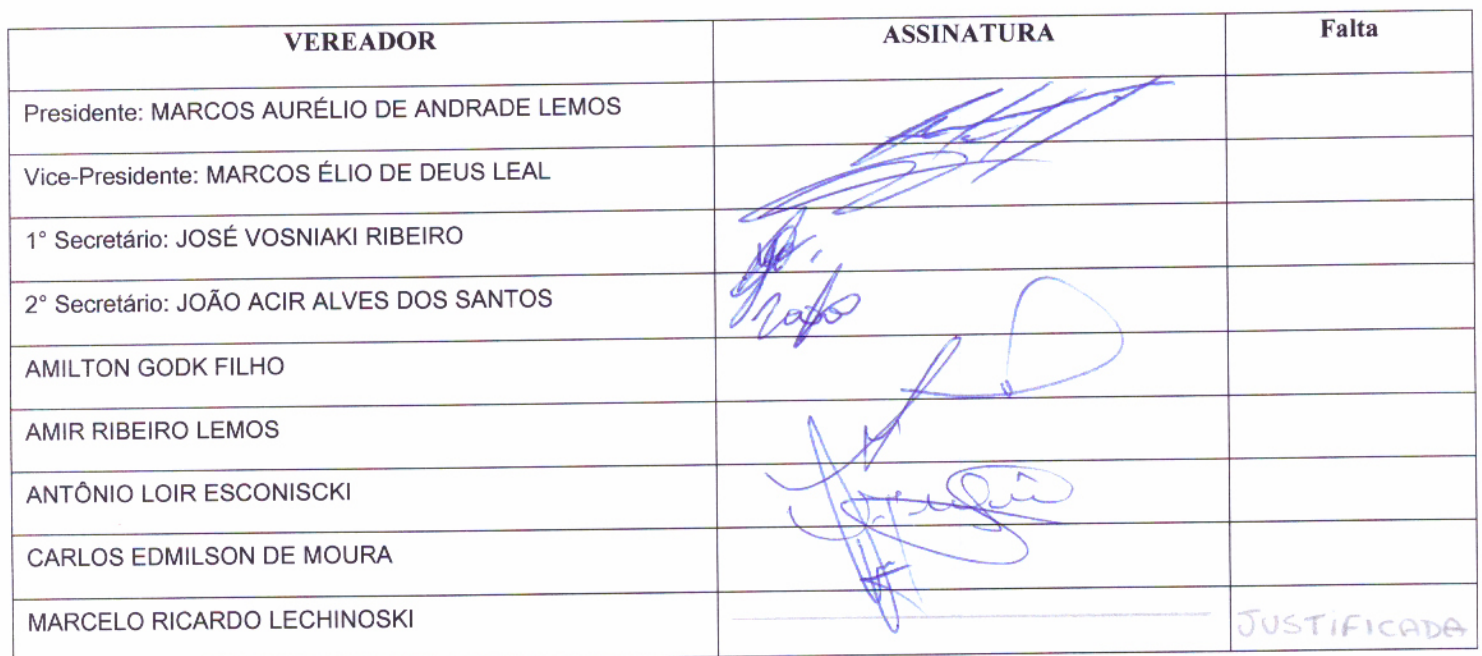 VEREADOR ASSINATURA Falta
Presidente: MARCOS AURÉLIO DE ANDRADE LEMOS
Vice-Presidente: MARCOS ÉLIO DE DEUS LEAL
1° Secretário: JOSÉ VOSNIAKI RIBEIRO
2° Secretário: JOÃO ACIR ALVES DOS SANTOS
AMILTON GODK FILHO
AMIR RIBEIRO LEMOS
ANTÔNIO LOIR ESCONISCKI
CARLOS EDMILSON DE MOURA
MARCELO RICARDO LECHINOSKI JUSTIFICADA